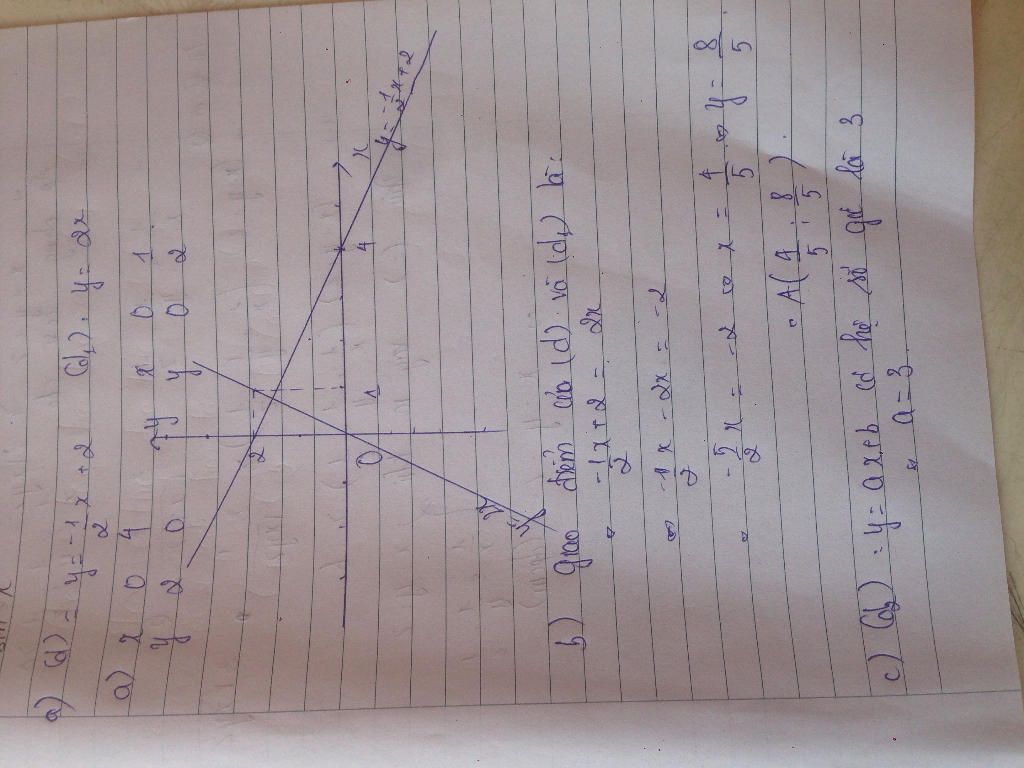 a) (d) = y = -1/2 x + 2 (d1) : y = 2x
a) x 0 4 x 0 1
y 2 0 y 0 2
y
2
0 1 4 x
y = -1/2 x + 2
y = 2x
b) giao điểm của (d) và (d1) là:
⇔ -1/2 x + 2 = 2x
⇔ -1/2 x - 2x = -2
⇔ -5/2 x = -2 ⇔ x = 4/5 ⇔ y = 8/5
A (4/5 ; 8/5).
c) (d2) = y = ax + b có hệ số góc là 3
a = 3